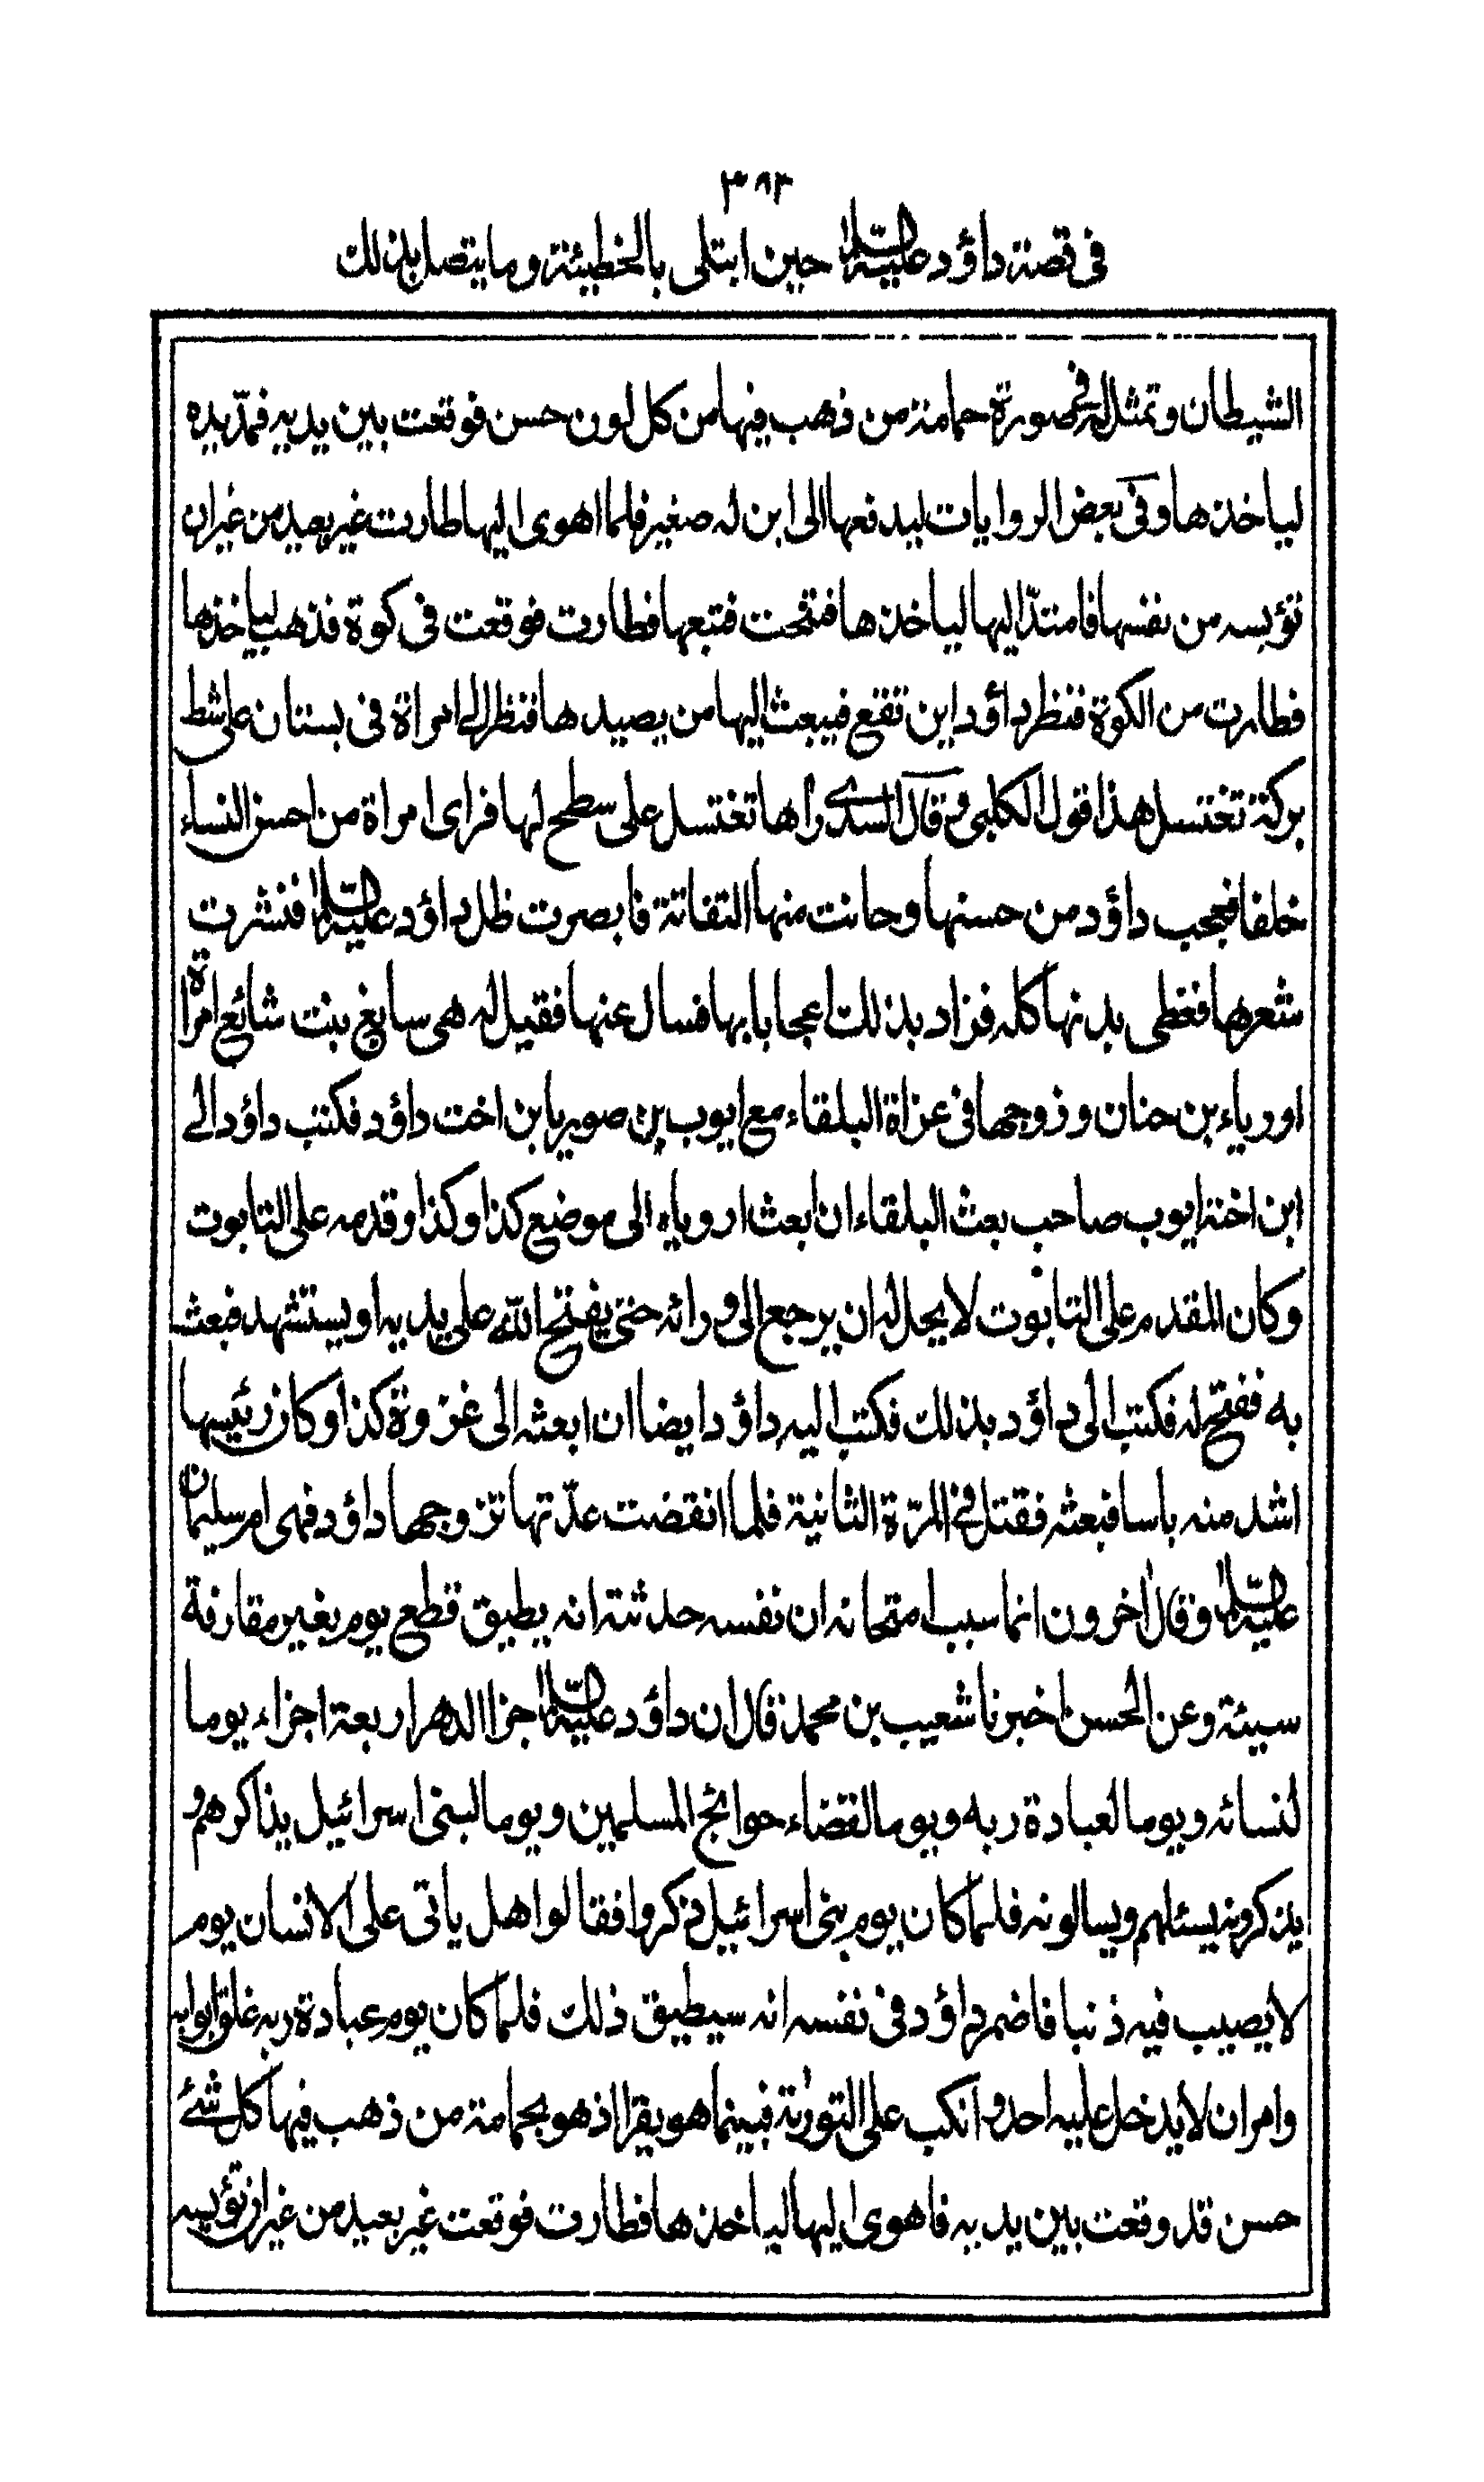 ٣٨٢
فى قصة داؤد عليه السلام حين ابتلى بالخطيئة وما يتصل بذلك
الشيطان وتمثل له فى صورة حمامة من ذهب فيها من كل لون حسن فوقعت بين يديه فمدّ يده
لياخذها وفى بعض الروايات ليدفعها الى ابن له صغير فلما اهوى اليها طارت غير بعيد من غيران
تؤيسه من نفسها فامتدّ اليها لياخذها فتنحت فتبعها فطارت فوقعت فى كوة فذهب لياخذها
فطارت من الكوة فنظر داؤد اين تقع فيبعث اليها من يصيدها فنظر الى امراة فى بستان على شط
بركة تغتسل هذا قول الكلبى وقال السدى راها تغتسل على سطح لها فراى امراة من احسن النساء
خلقا فعجب داؤد من حسنها وحانت منها التفاتة فابصرت ظل داؤد عليه السلام فنشرت
شعرها فغطى بدنها كله فزاد بذلك اعجابا بها فسال عنها فقيل له هى سايغ بنت شائع امراة
اورياء بن حنان وزوجها فى غزاة البلقاء مع ايوب بن صوريا بن اخت داؤد فكتب داؤد الى
ابن اخته ايوب صاحب بعث البلقاء ان ابعث اروياه الى موضع كذا وكذا وقدمه على التابوت
وكان المقدم على التابوت لا يحل له ان يرجع الى ورائه حتى يفتح الله على يديه او يستشهد فبعث
به ففتح له فكتب الى داؤد بذلك فكتب اليه داؤد ايضا ان ابعثه الى غزوة كذا وكان رئيسها
اشد منه باسا فبعثه فقتل فى المرّة الثانية فلما انقضت عدّتها تزوجها داؤد فهى ام سليمان
عليه السلام وقال اخرون انما سبب امتحانه ان نفسه حدثته انه يطيق قطع يوم بغير مقارفة
سيئة وعن الحسن اخبرنا شعيب بن محمد قال ان داؤد عليه السلام جزا الدهر اربعة اجزاء يوما
لنسائه ويوما لعبادة ربه ويوما لقضاء حوائج المسلمين ويوما لبنى اسرائيل يذاكرهم و
يذكرونه يسئلهم ويسالونه فلما كان يوم بنى اسرائيل ذكروا فقالوا هل ياتى على الانسان يوم
لا يصيب فيه ذنبا فاضمر داؤد فى نفسه انه سيطيق ذلك فلما كان يوم عبادة ربه غلق ابوابه
وامر ان لا يدخل عليه احد وانكب على التورىة فبينما هو يقرا اذ هو بحمامة من ذهب فيها كل شئ
حسن قد وقعت بين يديه فاهوى اليها لياخذها فطارت فوقعت غير بعيد من غير ان تؤيسه